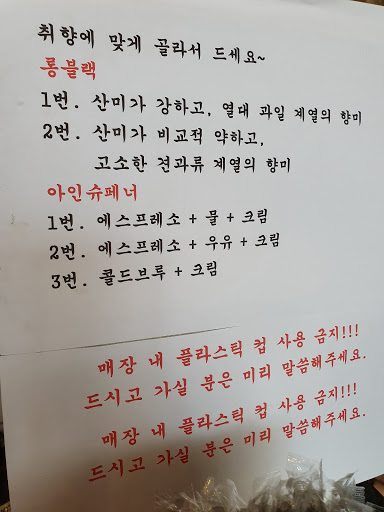 취향에 맞게 골라서 드세요~
롱블랙
1번. 산미가 강하고, 열대 과일 계열의 향미
2번. 산미가 비교적 약하고,
고소한 견과류 계열의 향미
아인슈페너
1번. 에스프레소 + 물 + 크림
2번. 에스프레소 + 우유 + 크림
3번. 콜드브루 + 크림
매장 내 플라스틱 컵 사용 금지!!!
드시고 가실 분은 미리 말씀해주세요.
매장 내 플라스틱 컵 사용 금지!!!
드시고 가실 분은 미리 말씀해주세요.